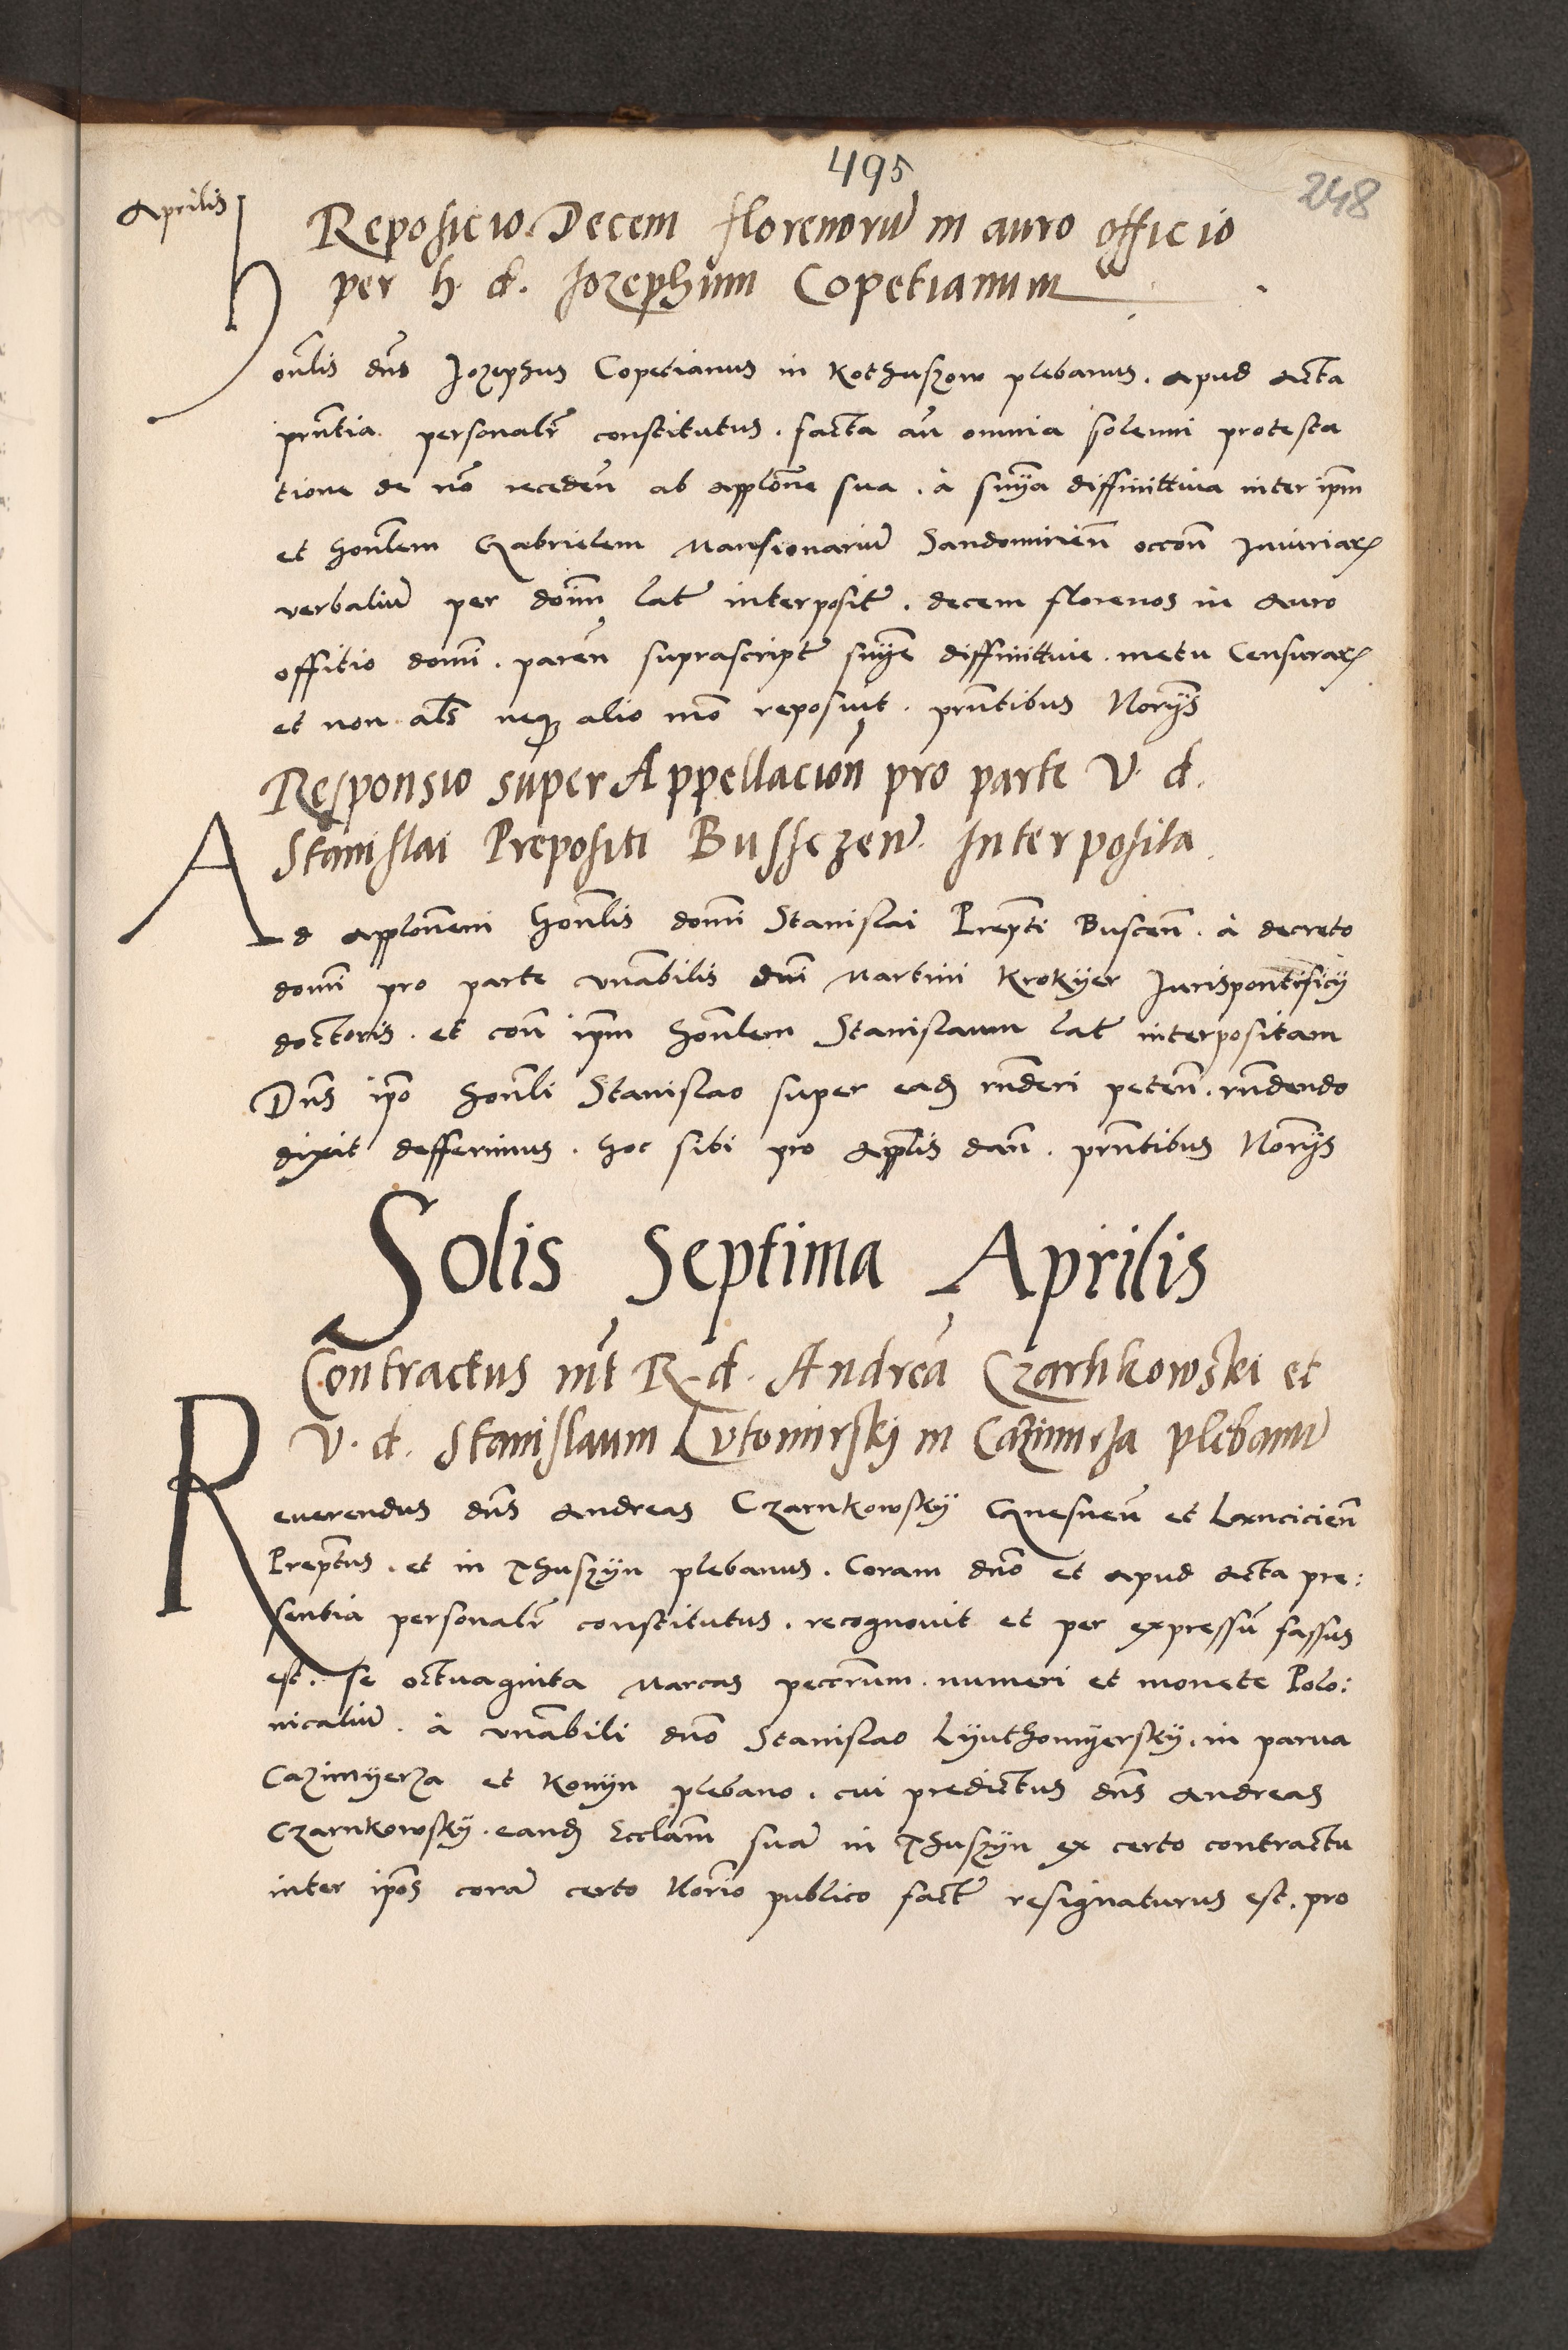 495
248
Aprilis
Reposicio Decem florenorū in auro officio
per h. d. Iozephum Copetianum
Honlis dns Jozephus Copetianus in Kothuszow plebanus. apud acta
prntia personalr constitutus. facta an omnia solenni protesta
tione de no receden ab applone sua. à snya diffinittiva inter ipm
et honlem Gabrielem Mansionariū Sandomirien occon Iniuriarꝝ
verbaliū per doim lat interposit. decem florenos in auro
offitio domi. paren suprascript snye diffinittive. metu Censurarꝝ
et non als neqꝫ alio mo reposuit. prntibus Norÿs
Responsio super Appellacion pro parte V. d.
Stanislai Prepositi Bussczen Interposita.
Ad applonem honlis domi Stanislai Prepti Buscen. à decreto
domi pro parte vnabilis dni Martini Krokÿer Jurispontificÿ
doctoris. et con ipm honlem Stanislaum lat interpositam
Dns ipo honli Stanislao super eadꝫ rnderi peten. rndendo
dixit defferimus. hoc sibi pro aplis dan. prntibus Norÿs
Solis Septima Aprilis
Contractus int R. d. Andreā Czarnkowski et
V. d. Stanislaum Lutomirskÿ in Cazimirza plebanū
Reverendus dns Andreas Czarnkowskÿ Gnesnen et Lancicien
Preptus. et in Thuszÿn plebanus. Coram dno et apud acta pre:
sentia personalr constitutus. recognovit et per expressū fassus
est. se octuaginta Marcas peccrum. numeri et monete Polo:
nicaliū. à vnabili dno Stanislao Lÿuthomÿerskÿ. in parva
Cazimÿerza et Konÿn plebano. cui predictus dns Andreas
Czarnkowskÿ. eandꝫ Ecclam suā in Thuszÿn ex certo contractu
inter ipos corā certo Norio publico fact resignaturus est. pro